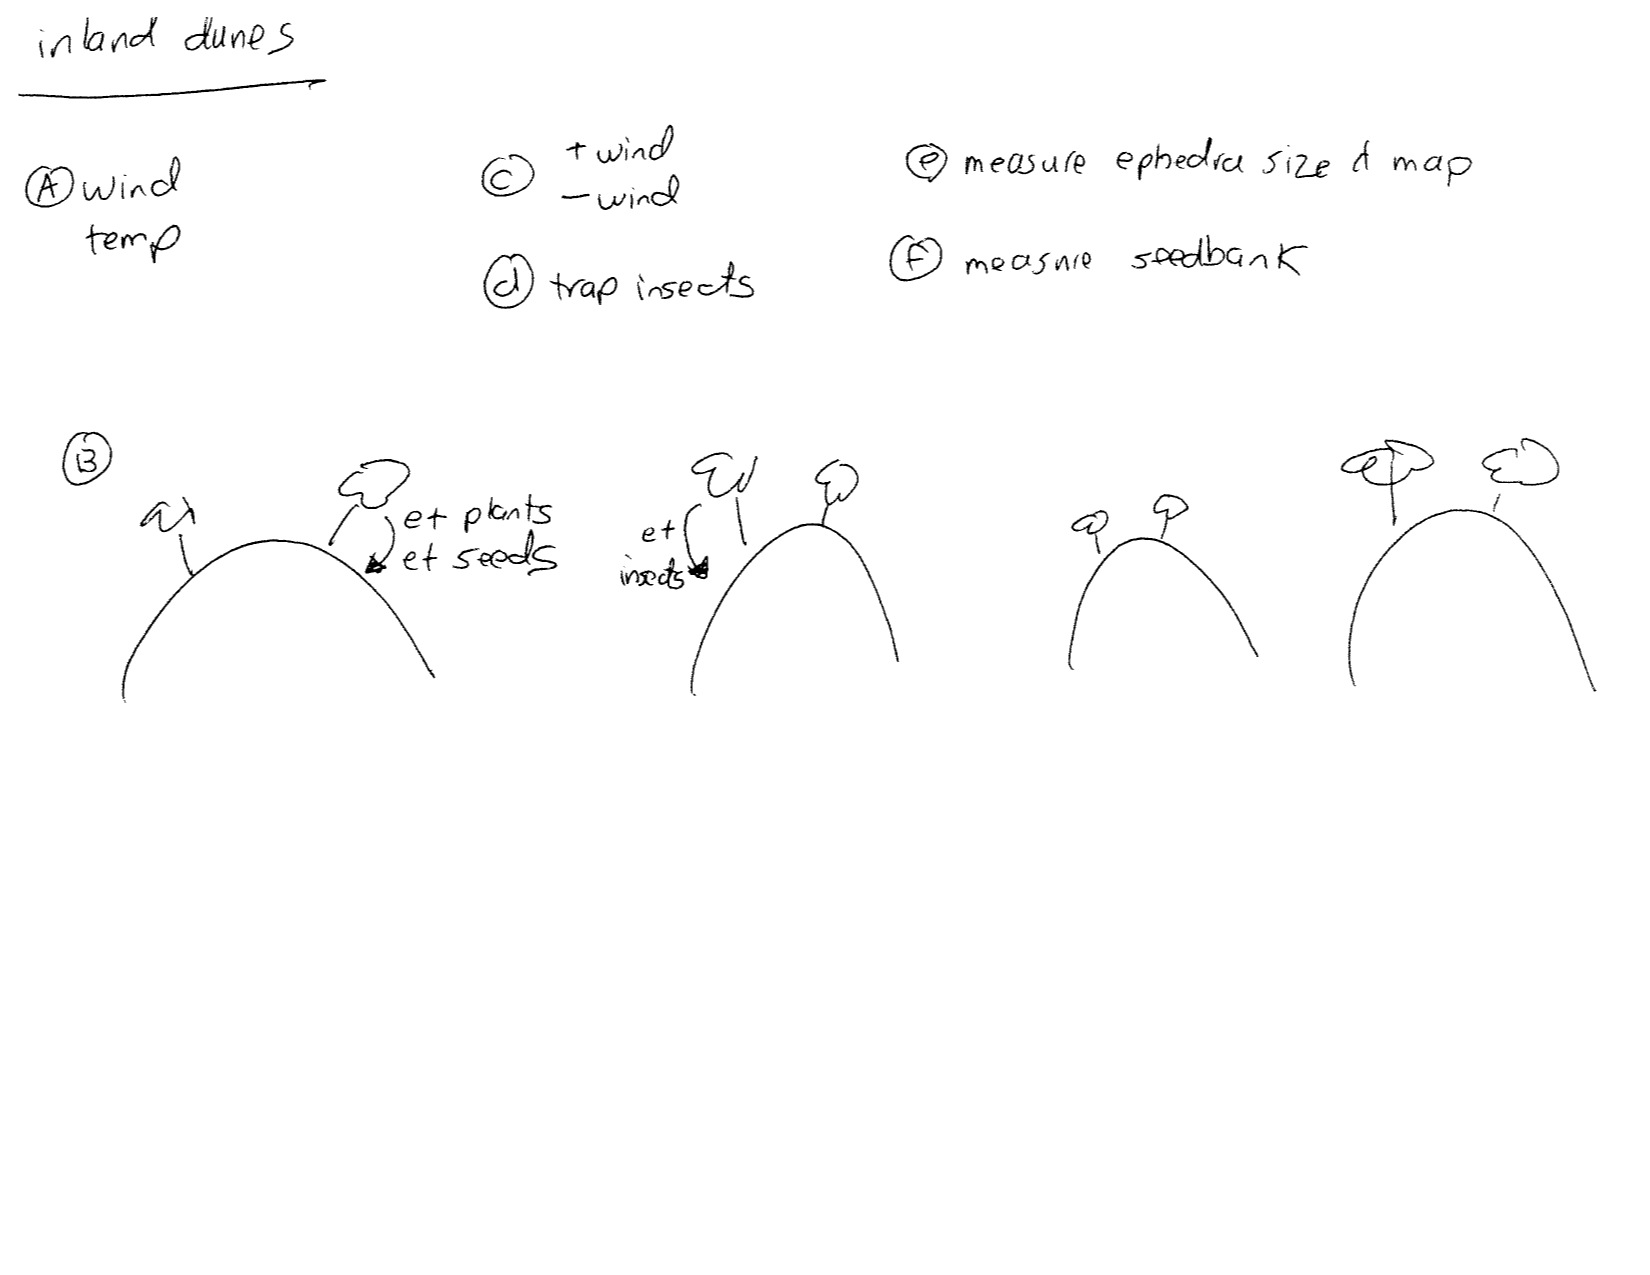 inland dunes
A wind
temp
c + wind
- wind
d trap insects
e measure ephedra size & map
F measure seedbank
B
et plants
et seeds
et
insects